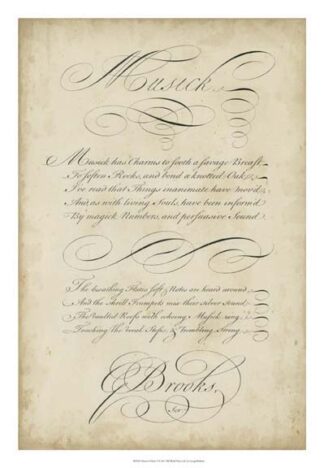 Musick
Musick has Charms to sooth a savage Breast
To soften Rocks, and bend a knotted Oak
I've read that Things inanimate have mov'd
And as with living Souls, have been inform'd
By magick Numbers, and persuasive Sound
The breathing Flutes soft Notes are heard around
And the shrill Trumpets mix their silver Sound
The vaulted Roofs with echoing Musick rung
Touching the vocal Stops & Trembling String
E Brooks